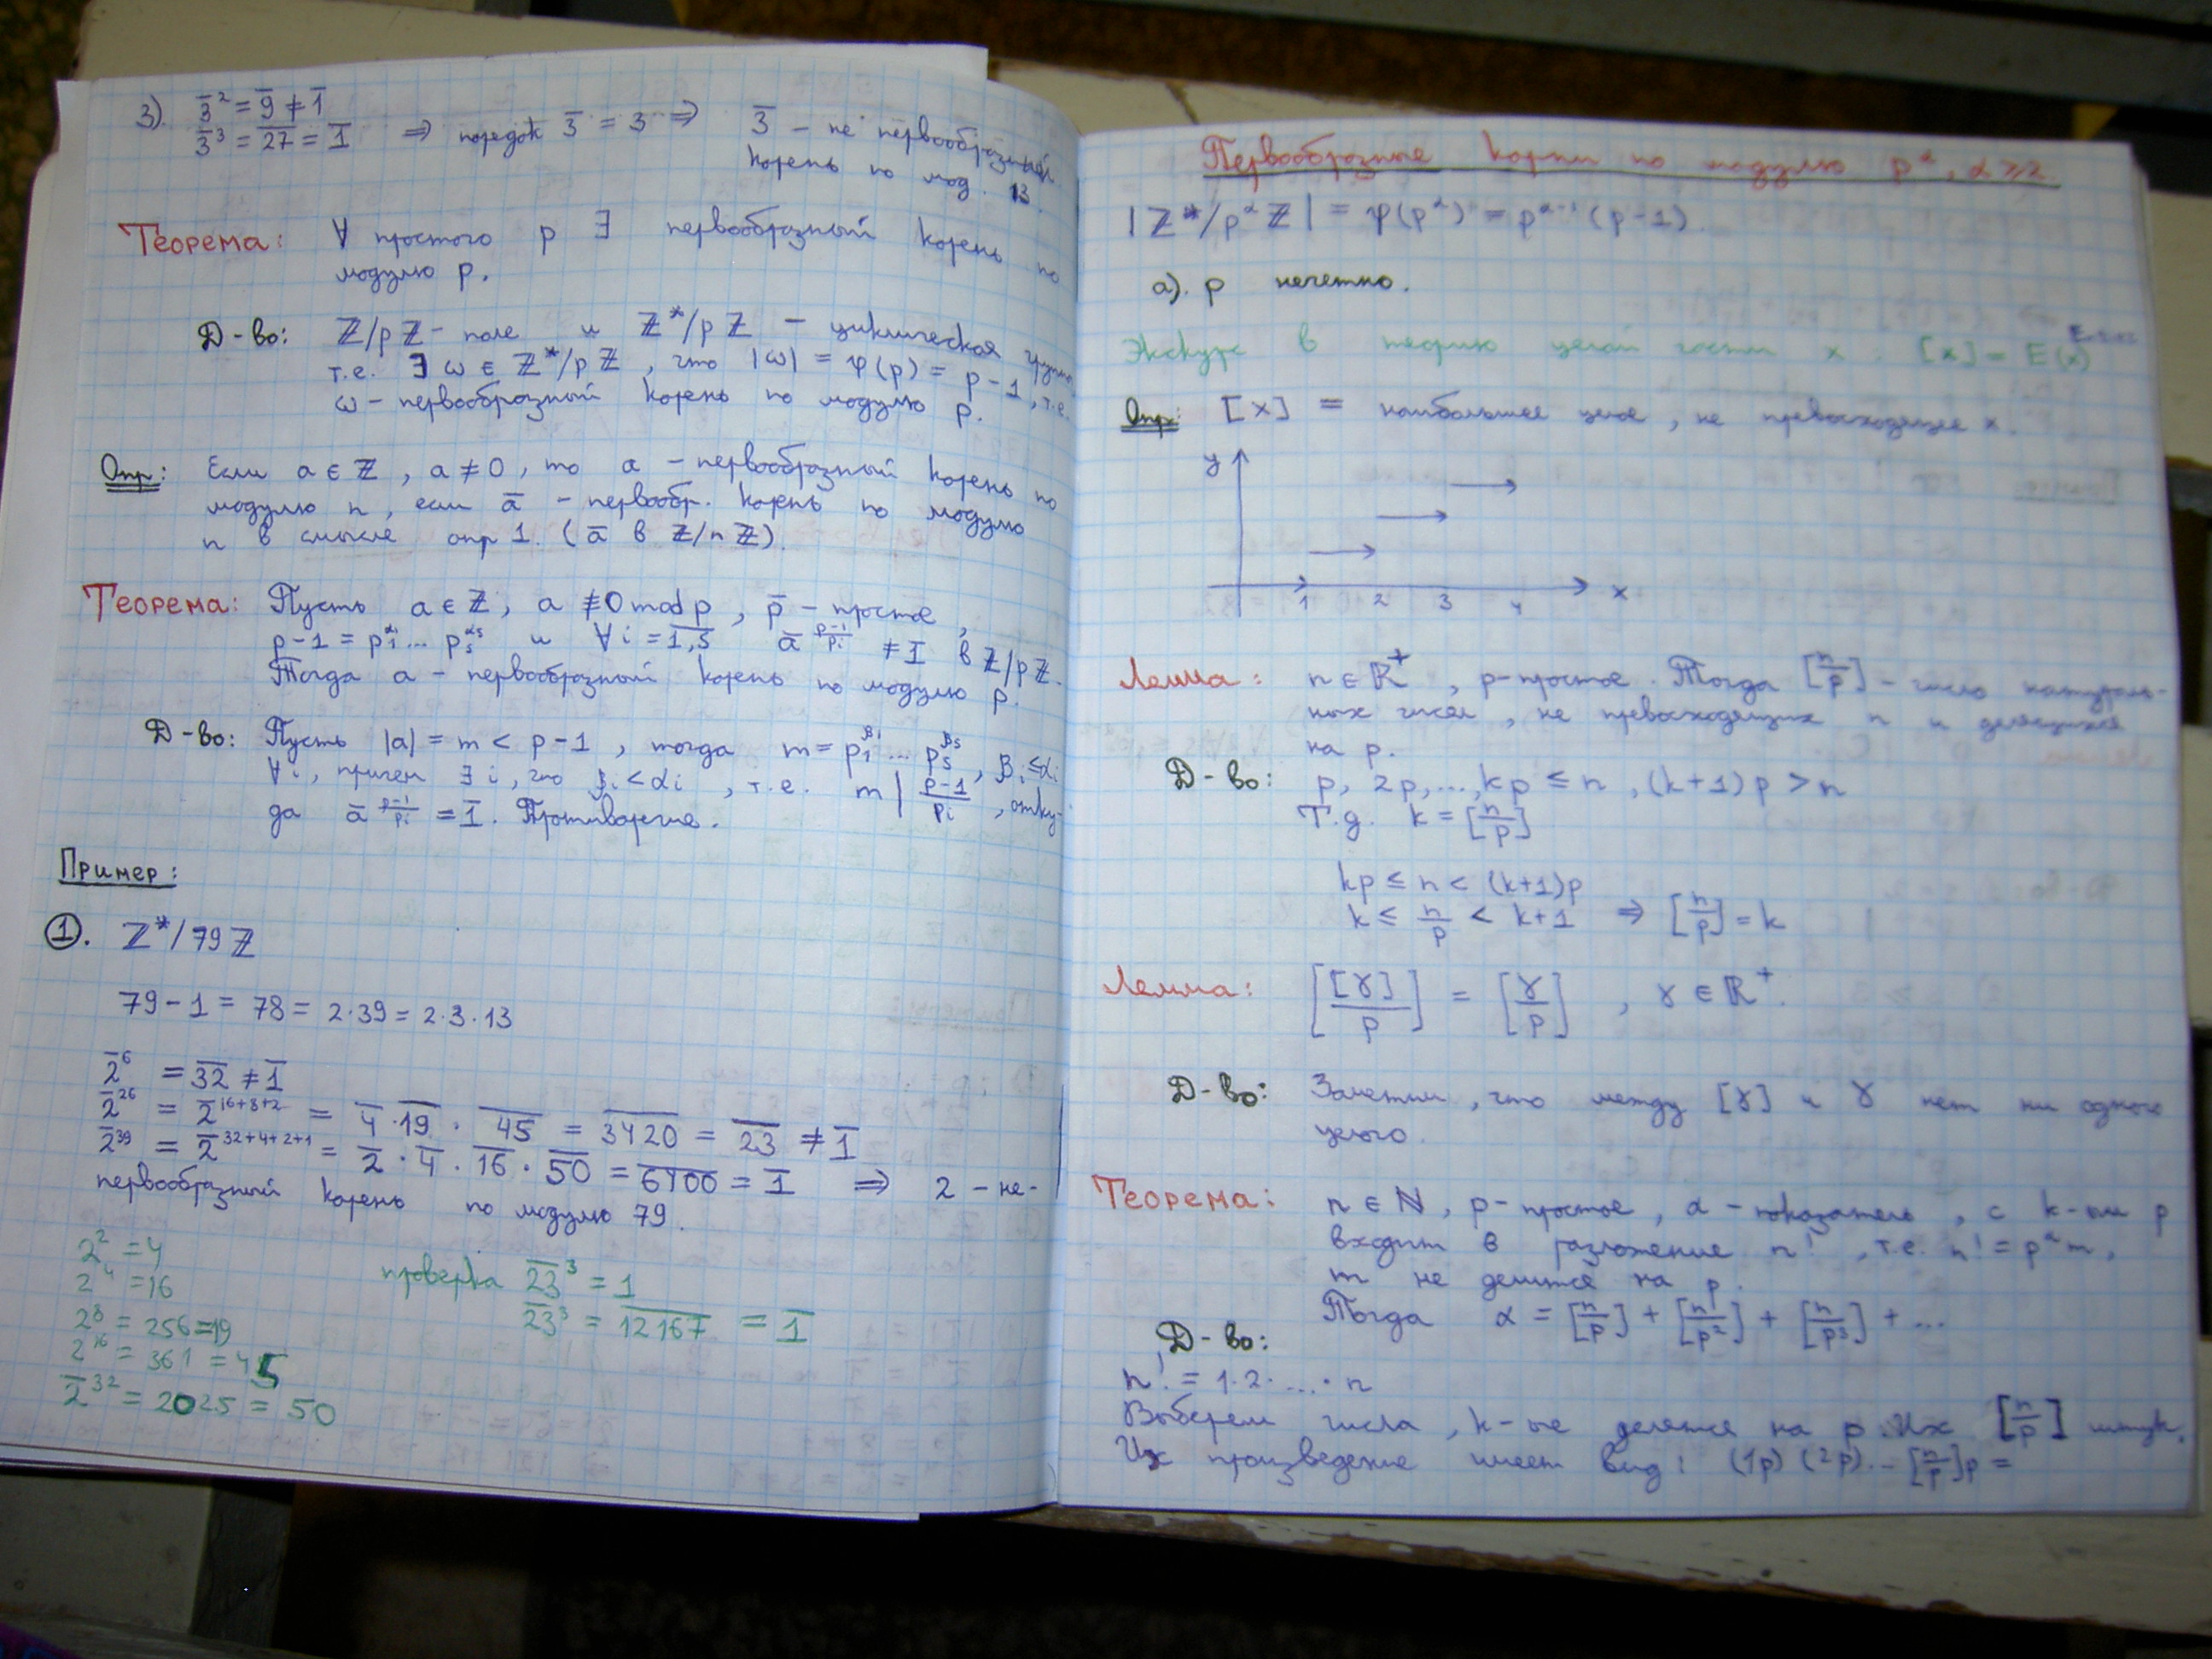 3). 3̄² = 9̄ ≠ 1̄
3̄³ = 27̄ = 1̄ ⇒ порядок 3̄ = 3 ⇒ 3̄ – не первообразный
корень по мод. 13.
Теорема: ∀ простого p ∃ первообразный корень по
модулю p.
Д-во: ℤ/pℤ – поле и ℤ*/pℤ – циклическая группа,
т.е. ∃ ω ∈ ℤ*/pℤ, что |ω| = φ(p) = p-1, т.е.
ω – первообразный корень по модулю p.
Опр: Если a ∈ ℤ, a ≠ 0, то a – первообразный корень по
модулю n, если ā – первообр. корень по модулю
n в смысле опр 1. (ā в ℤ/nℤ).
Теорема: Пусть a ∈ ℤ, a ≢ 0 mod p, p – простое,
p-1 = p₁^α₁ ... pₛ^αₛ и ∀ i = 1,s ā^((p-1)/pᵢ) ≠ 1̄ в ℤ/pℤ.
Тогда a – первообразный корень по модулю p.
Д-во: Пусть |a| = m < p-1, тогда m = p₁^β₁ ... pₛ^βₛ, βᵢ ≤ αᵢ
∀ i, причем ∃ i, что βᵢ < αᵢ, т.е. m | (p-1)/pᵢ, отку-
да ā^((p-1)/pᵢ) = 1̄. Противоречие.
Пример:
①. ℤ*/79ℤ
79-1 = 78 = 2·39 = 2·3·13
2̄⁶ = 32̄ ≠ 1̄
2̄²⁶ = 2̄^(16+8+2) = 4̄·19̄·45̄ = 3420̄ = 23̄ ≠ 1̄
2̄³⁹ = 2̄^(32+4+2+1) = 2̄·4̄·16̄·50̄ = 6400̄ = 1̄ ⇒ 2 – не-
первообразный корень по модулю 79.
2² = 4
2⁴ = 16
2⁸ = 256 = 19
2¹⁶ = 361 = 45
2̄³² = 2025 = 50
проверка 23̄³ = 1
23̄³ = 12167̄ = 1̄
Первообразные корни по модулю p^α, α ≥ 2.
|ℤ*/p^αℤ| = φ(p^α) = p^(α-1) (p-1).
а). p нечетно.
Экскурс в теорию целой части x : [x] = E(x)
Опр: [x] = наибольшее целое, не превосходящее x.
y
1 2 3 4 x
Лемма: n ∈ ℝ⁺, p-простое. Тогда [n/p] – число натураль-
ных чисел, не превосходящих n и делящихся
на p.
Д-во: p, 2p, ..., kp ≤ n, (k+1)p > n
Т.д. k = [n/p]
kp ≤ n < (k+1)p
k ≤ n/p < k+1 ⇒ [n/p] = k
Лемма: [[γ]/p] = [γ/p], γ ∈ ℝ⁺.
Д-во: Заметим, что между [γ] и γ нет ни одного
целого.
Теорема: n ∈ ℕ, p-простое, α – показатель, с к-ым p
входит в разложение n!, т.е. n! = p^α m,
m не делится на p.
Тогда α = [n/p] + [n/p²] + [n/p³] + ...
Д-во:
n! = 1·2·...·n
Выберем числа, к-ые делятся на p. Их [n/p] штук.
Их произведение имеет вид: (1p)(2p)...[n/p]p =